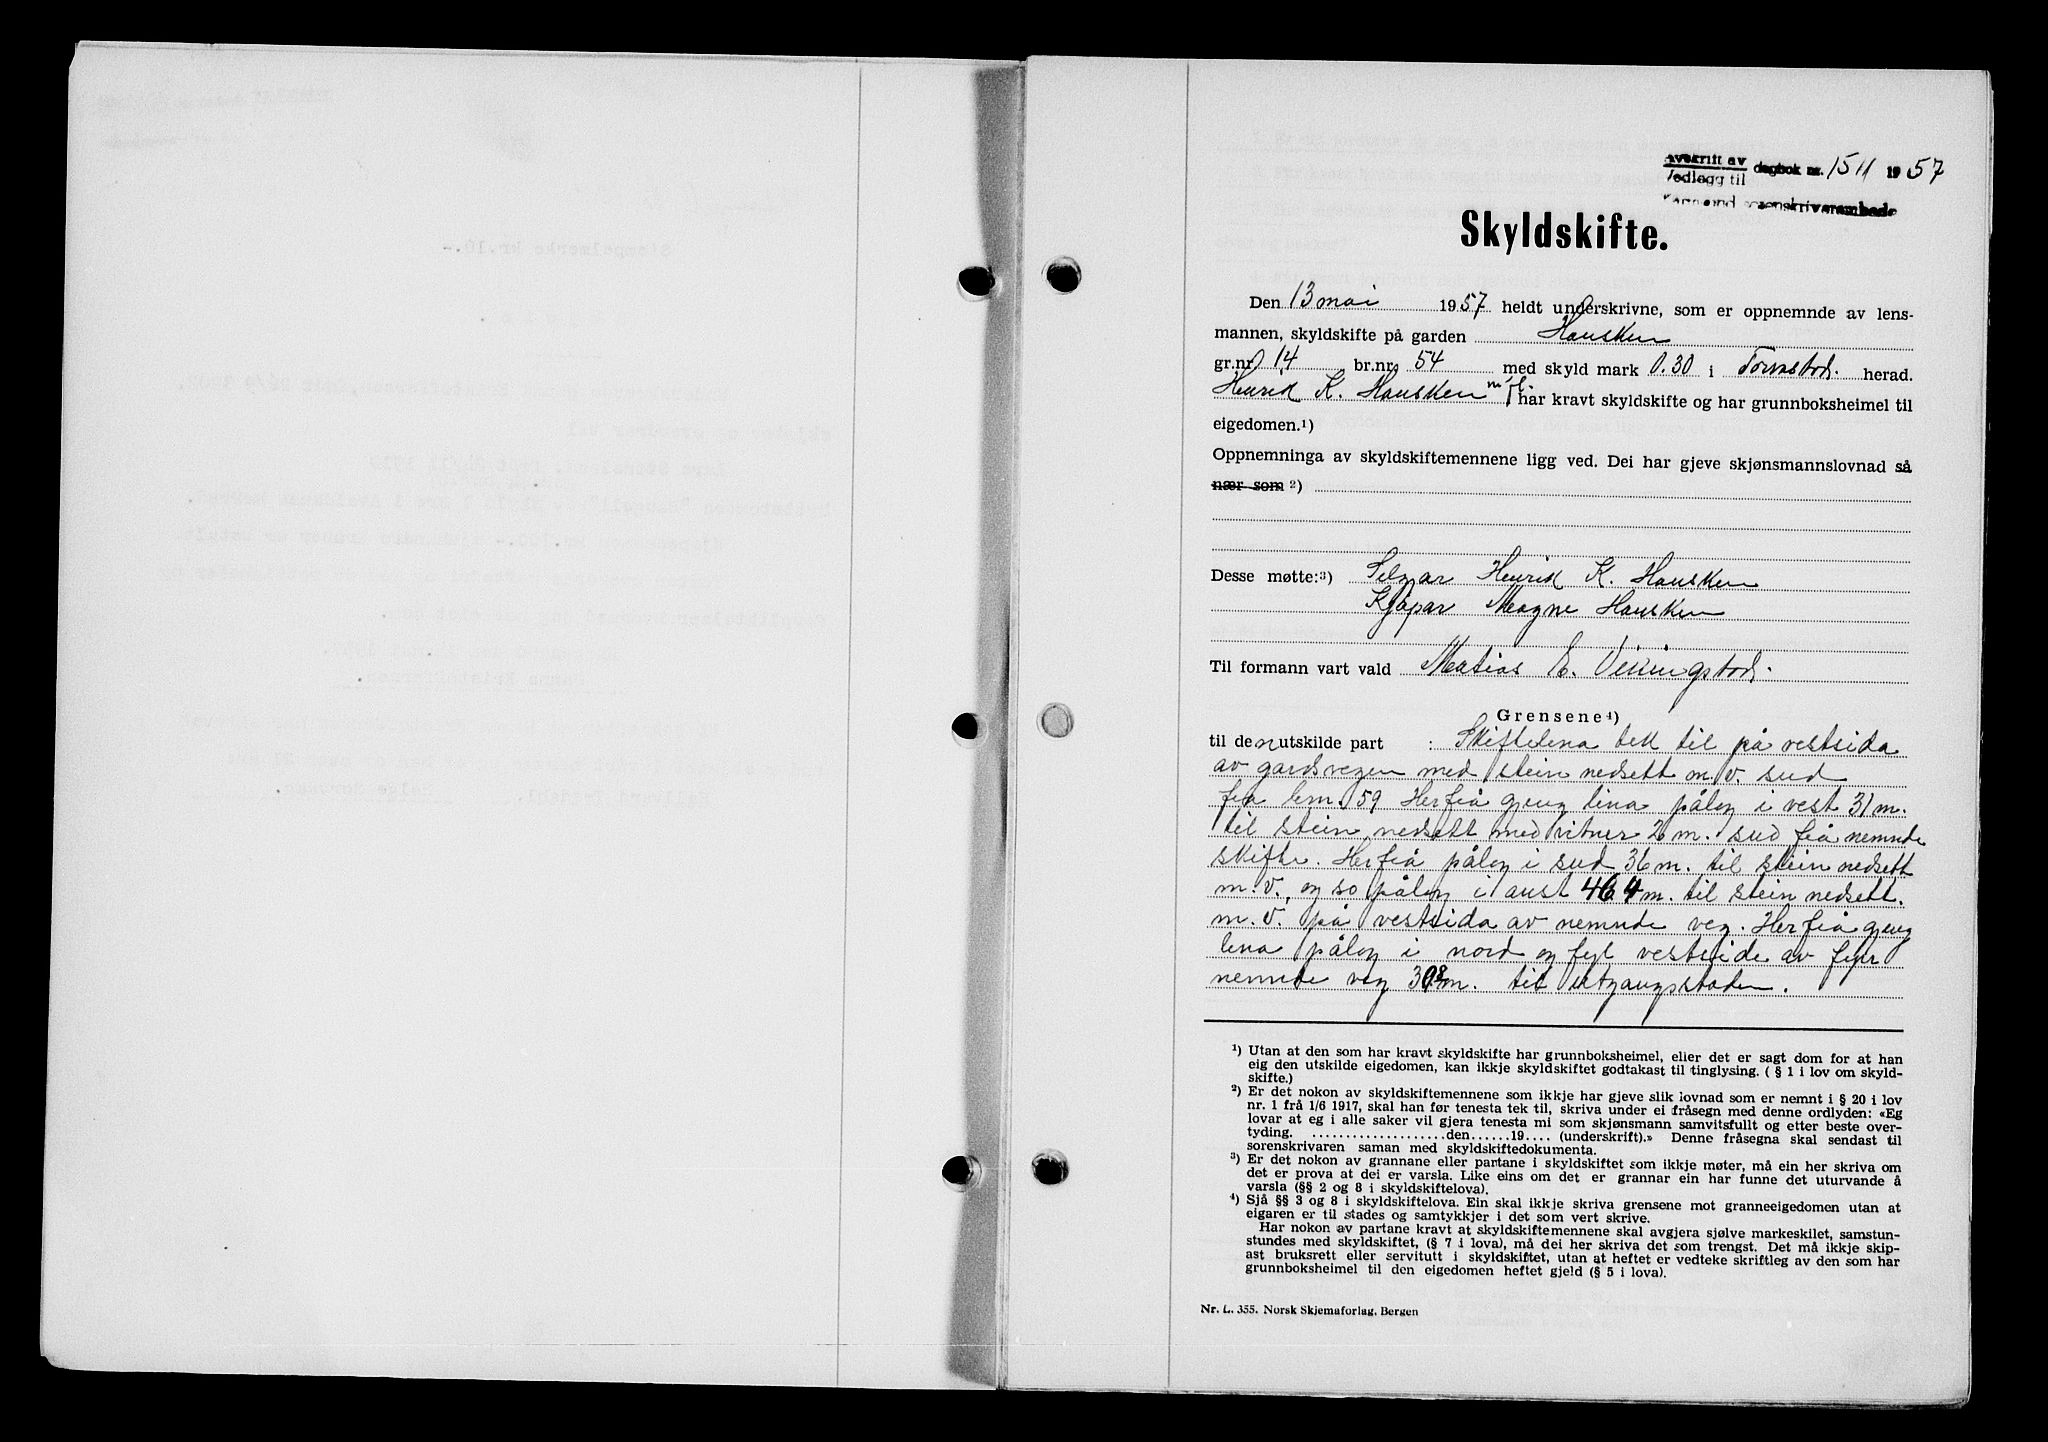 Avskrift av dagbok nr. 1511 1957
Vedlegg til
Karmsund sorenskriverembede
Skyldskifte.
Den 13 mai 1957 heldt underskrivne, som er oppnemnde av lens-
mannen, skyldskifte på garden Hausken
gr.nr. 14 br.nr. 54 med skyld mark 0.30 i Torvastad. herad.
Henrik K. Hausken m/fl. har kravt skyldskifte og har grunnboksheimel til
eigedomen.¹)
Oppnemninga av skyldskiftemennene ligg ved. Dei har gjeve skjønsmannslovnad så
nær som ²)
Desse møtte:³) Seljar Henrik K. Hausken
Kjøpar Magne Hausken
Til formann vart vald Matias E. Vikingstad.
Grensene⁴)
til den utskilde part : Skiftelina tek til på vestsida
av gardsvegen med stein nedsett m.v. sud
frå brn. 59 Herfrå gjeng lina pålag i vest 31 m.
til stein nedsett med vitner 2 m. sud frå nemnde
skifte. Herfrå pålag i sud 36 m. til stein nedsett
m.v., og so pålag i aust 46.4 m. til stein nedsett.
m.v. på vestsida av nemnde veg. Herfrå gjeng
lina pålag i nord og fyl vestside av fyrr
nemnde veg m. til utgangsstaden.
¹) Utan at den som har kravt skyldskifte har grunnboksheimel, eller det er sagt dom for at han
eig den utskilde eigedomen, kan ikkje skyldskiftet godtakast til tinglysing. ( § 1 i lov om skyld-
skifte.)
²) Er det nokon av skyldskiftemennene som ikkje har gjeve slik lovnad som er nemnt i § 20 i lov
nr. 1 frå 1/6 1917, skal han før tenesta tek til, skriva under ei fråsegn med denne ordlyden: «Eg
lovar at eg i alle saker vil gjera tenesta mi som skjønsmann samvitsfullt og etter beste over-
tyding. ....................den......19.... (underskrift).» Denne fråsegna skal sendast til
sorenskrivaren saman med skyldskiftedokumenta.
³) Er det nokon av grannane eller partane i skyldskiftet som ikkje møter, må ein her skriva om
det er prova at dei er varsla. Like eins om det er grannar ein har funne det uturvande å
varsla (§§ 2 og 8 i skyldskiftelova).
⁴) Sjå §§ 3 og 8 i skyldskiftelova. Ein skal ikkje skriva grensene mot granneeigedomen utan at
eigaren er til stades og samtykkjer i det som vert skrive.
Har nokon av partane kravt at skyldskiftemennene skal avgjera sjølve markeskilet, samstun-
stundes med skyldskiftet, (§ 7 i lova), må dei her skriva det som trengst. Det må ikkje skip-
ast bruksrett eller servitutt i skyldskiftet, utan at heftet er vedteke skriftleg av den som har
grunnboksheimel til den eigedomen heftet gjeld (§ 5 i lova).
Nr. L. 355. Norsk Skjemaforlag, Bergen